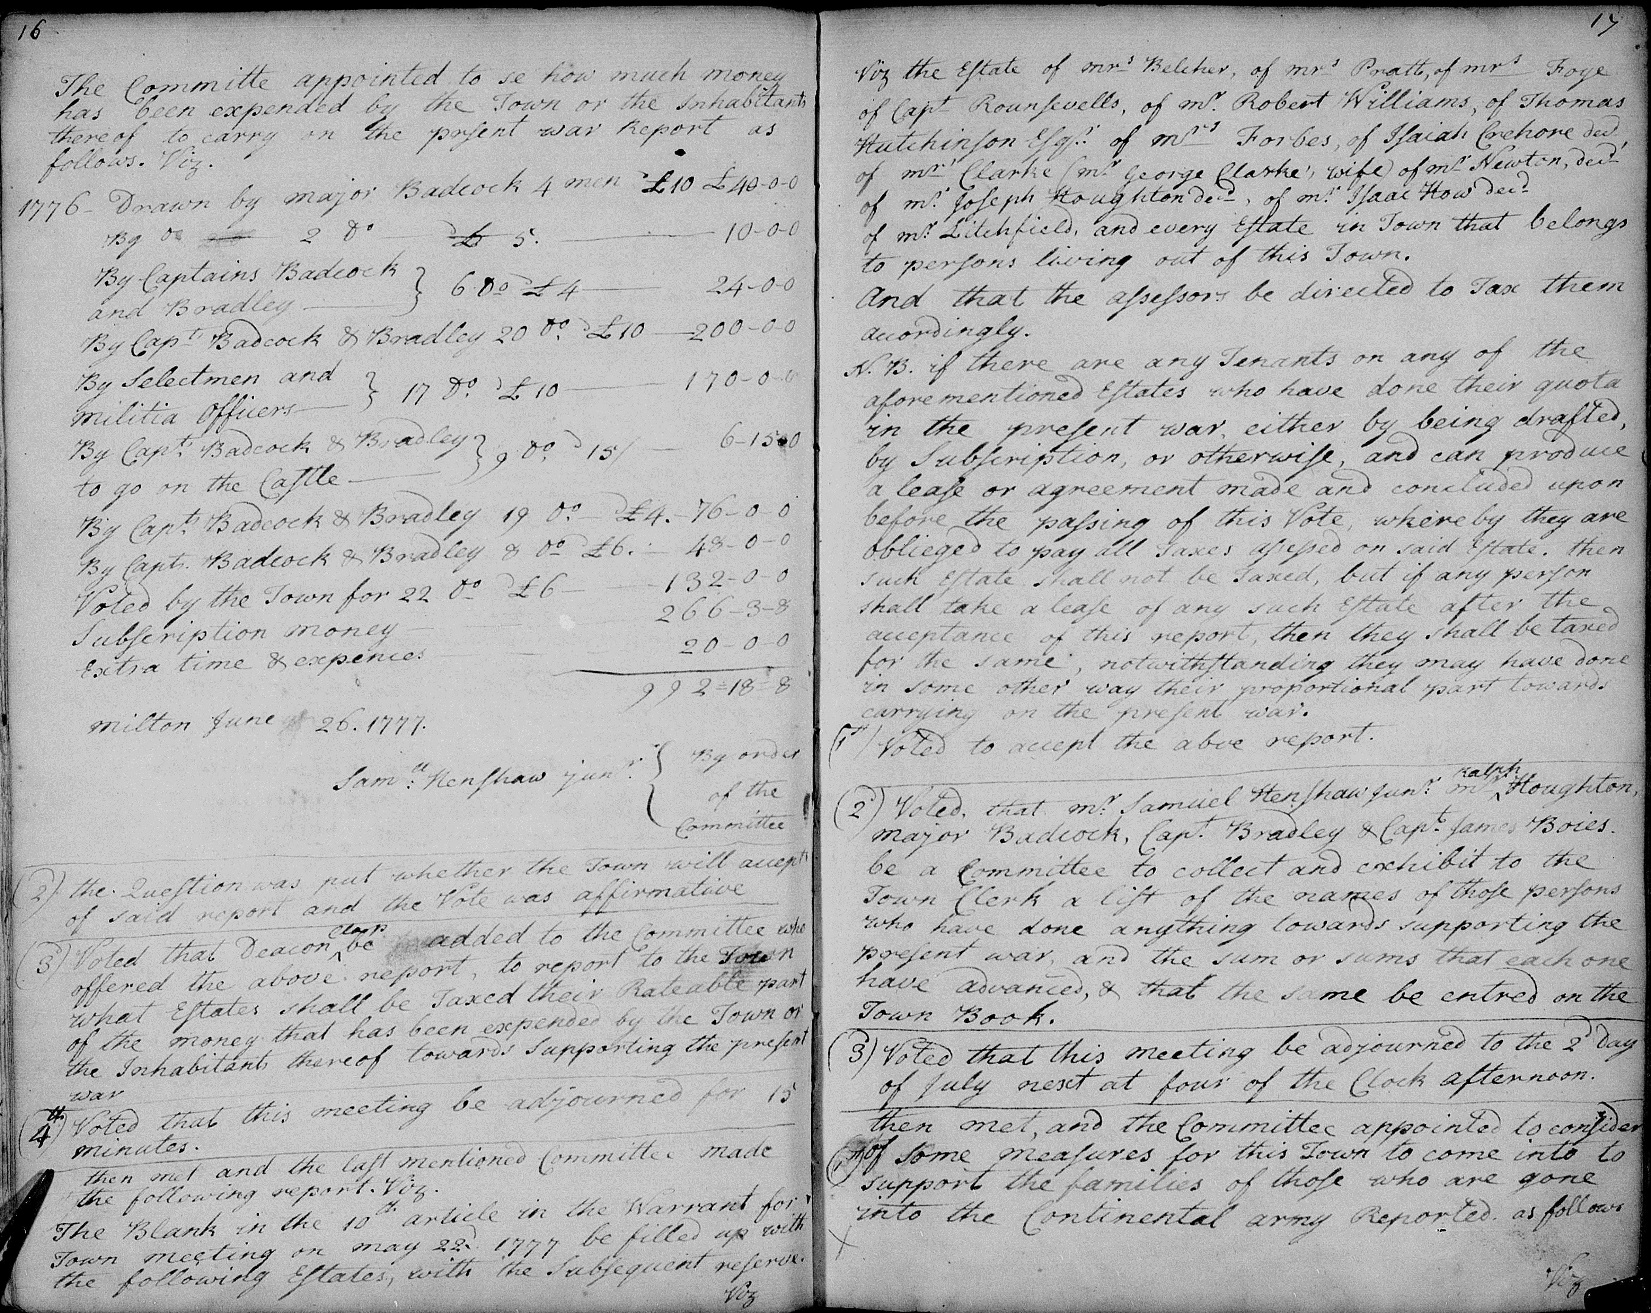 16
The Committe appointed to se how much money
has been expended by the Town or the Inhabitants
thereof to carry on the prsent war Report as
follows. Viz.
1776 - Drawn by major Badcock 4 men @ £10 £40-0-0
By do 2 do £ 5. 10-0-0
By Captains Badcock
and Bradley } 6 do @ £4 24-0-0
By Capts Badcock & Bradley 20 do @ £10 200-0-0
By Selectmen and
militia officers } 17 do @ £10 170-0-0
By Capts Badcock & Bradley
to go on the Castle } 9 do @ 15/ 6-15-0
By Capts Badcock & Bradley 19 do @ £4. 76-0-0
By Capts. Badcock & Bradley 8 do @ £6. 48-0-0
Voted by the Town for 22 do @ £6 132-0-0
Subscription money 266-3-8
Extra time & expences 20-0-0
992=18=8
milton June 26. 1777.
Samll Henshaw junr. { By order
of the
Committee
2) the Question was put whether the Town will accept
of said report and the Vote was affirmative
3) Voted that Deacon Clap be added to the Committee who
offered the above report, to report to the Town
what Estates shall be Taxed their Rateable part
of the money that has been expended by the Town or
the Inhabitants thereof towards Supporting the present
war
4th) Voted that this meeting be adjourned for 15
minutes.
then met and the last mentioned Committee made
the following report. Viz.
The Blank in the 10th article in the Warrant for
Town meeting on may 22d. 1777 be filled up with
the following Estates, with the Subsequent reserve.
Viz
17
Viz the Estate of mrs Belcher, of mrs Pratt, of mrs Foye
of Capt Rounsevells, of mr. Robert Williams, of Thomas
Hutchinson Esqr. of mrs Forbes, of Isaiah Crehore decd
of mrs Clarke (mr George Clarke, wife) of mr Newton, decd
of mr. Joseph Houghton decd, of mr. Isaac How decd
of mr Litchfield, and every Estate in Town that belongs
to persons living out of this Town.
And that the assessors be directed to Tax them
accordingly.
N. B. if there are any Tenants on any of the
aforementioned Estates who have done their quota
in the present war, either by being drafted,
by Subscription, or otherwise, and can produce
a lease or agreement made and concluded upon
before the passing of this Vote, whereby they are
oblieged to pay all Taxes assessed on said Estate. then
such Estate shall not be Taxed, but if any person
shall take a lease of any such Estate after the
acceptance of this report, then they shall be taxed
for the same, notwithstanding they may have done
in some other way their proportional part towards
carrying on the present war.
1st) Voted to accept the abve report.
2) Voted, that mr. Samuel Henshaw Junr. mr Ralph Houghton,
major Badcock, Capt. Bradley & Capt. James Boies.
be a Committee to collect and exhibit to the
Town Clerk a list of the names of those persons
who have done anything towards supporting the
present war, and the sum or sums that each one
have advanced, & that the same be entred on the
Town Book.
3) Voted that this meeting be adjourned to the 2d Day
of July next at four of the Clock afternoon.
then met, and the Committee appointed to consider
of some measures for this Town to come into to
support the families of those who are gone
into the Continental army Reported. as follows
Viz